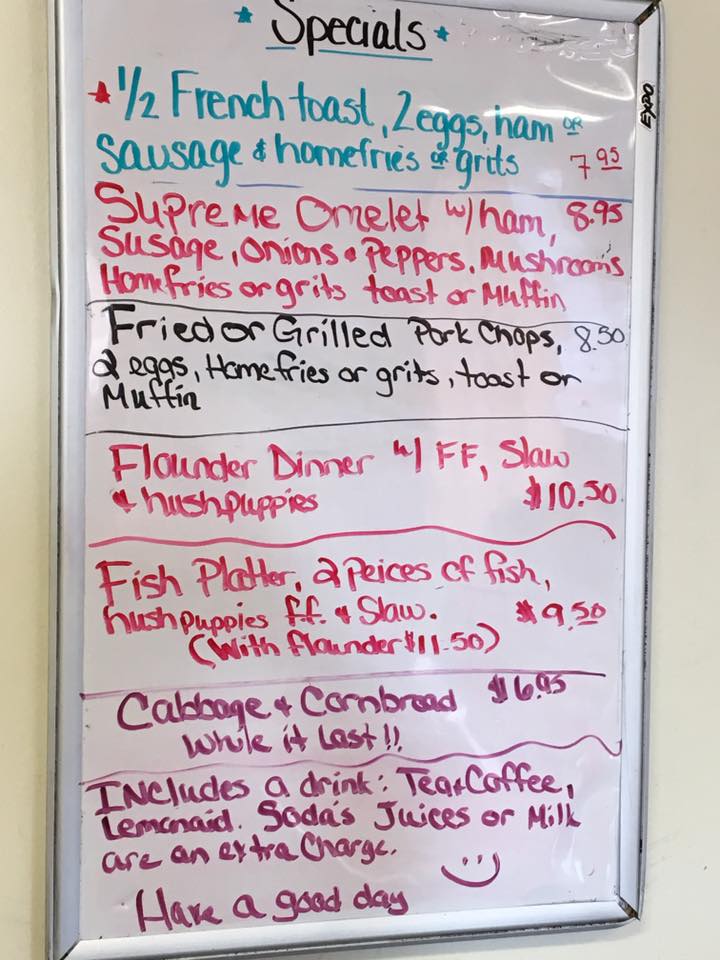 Specials
1/2 French toast, 2 eggs, ham or
Sausage & homefries or grits 7 95
Supreme Omelet w/ ham, 8.95
Susage, Onions & Peppers, Mushrooms
Homefries or grits toast or Muffin
Fried or Grilled Pork Chops, 8.50
2 eggs, Homefries or grits, toast or
Muffin
Flounder Dinner w/ FF, Slaw
& hushpuppies $10.50
Fish Platter, 2 Peices of fish,
hushpuppies f.f. & Slaw. $9.50
(With flounder $11.50)
Cabbage & Cornbread $6.95
While it Last!!
INcludes a drink: Tea & Coffee,
Lemonaid. Soda's Juices or Milk
are an extra Charge.
Have a good day
EXPO